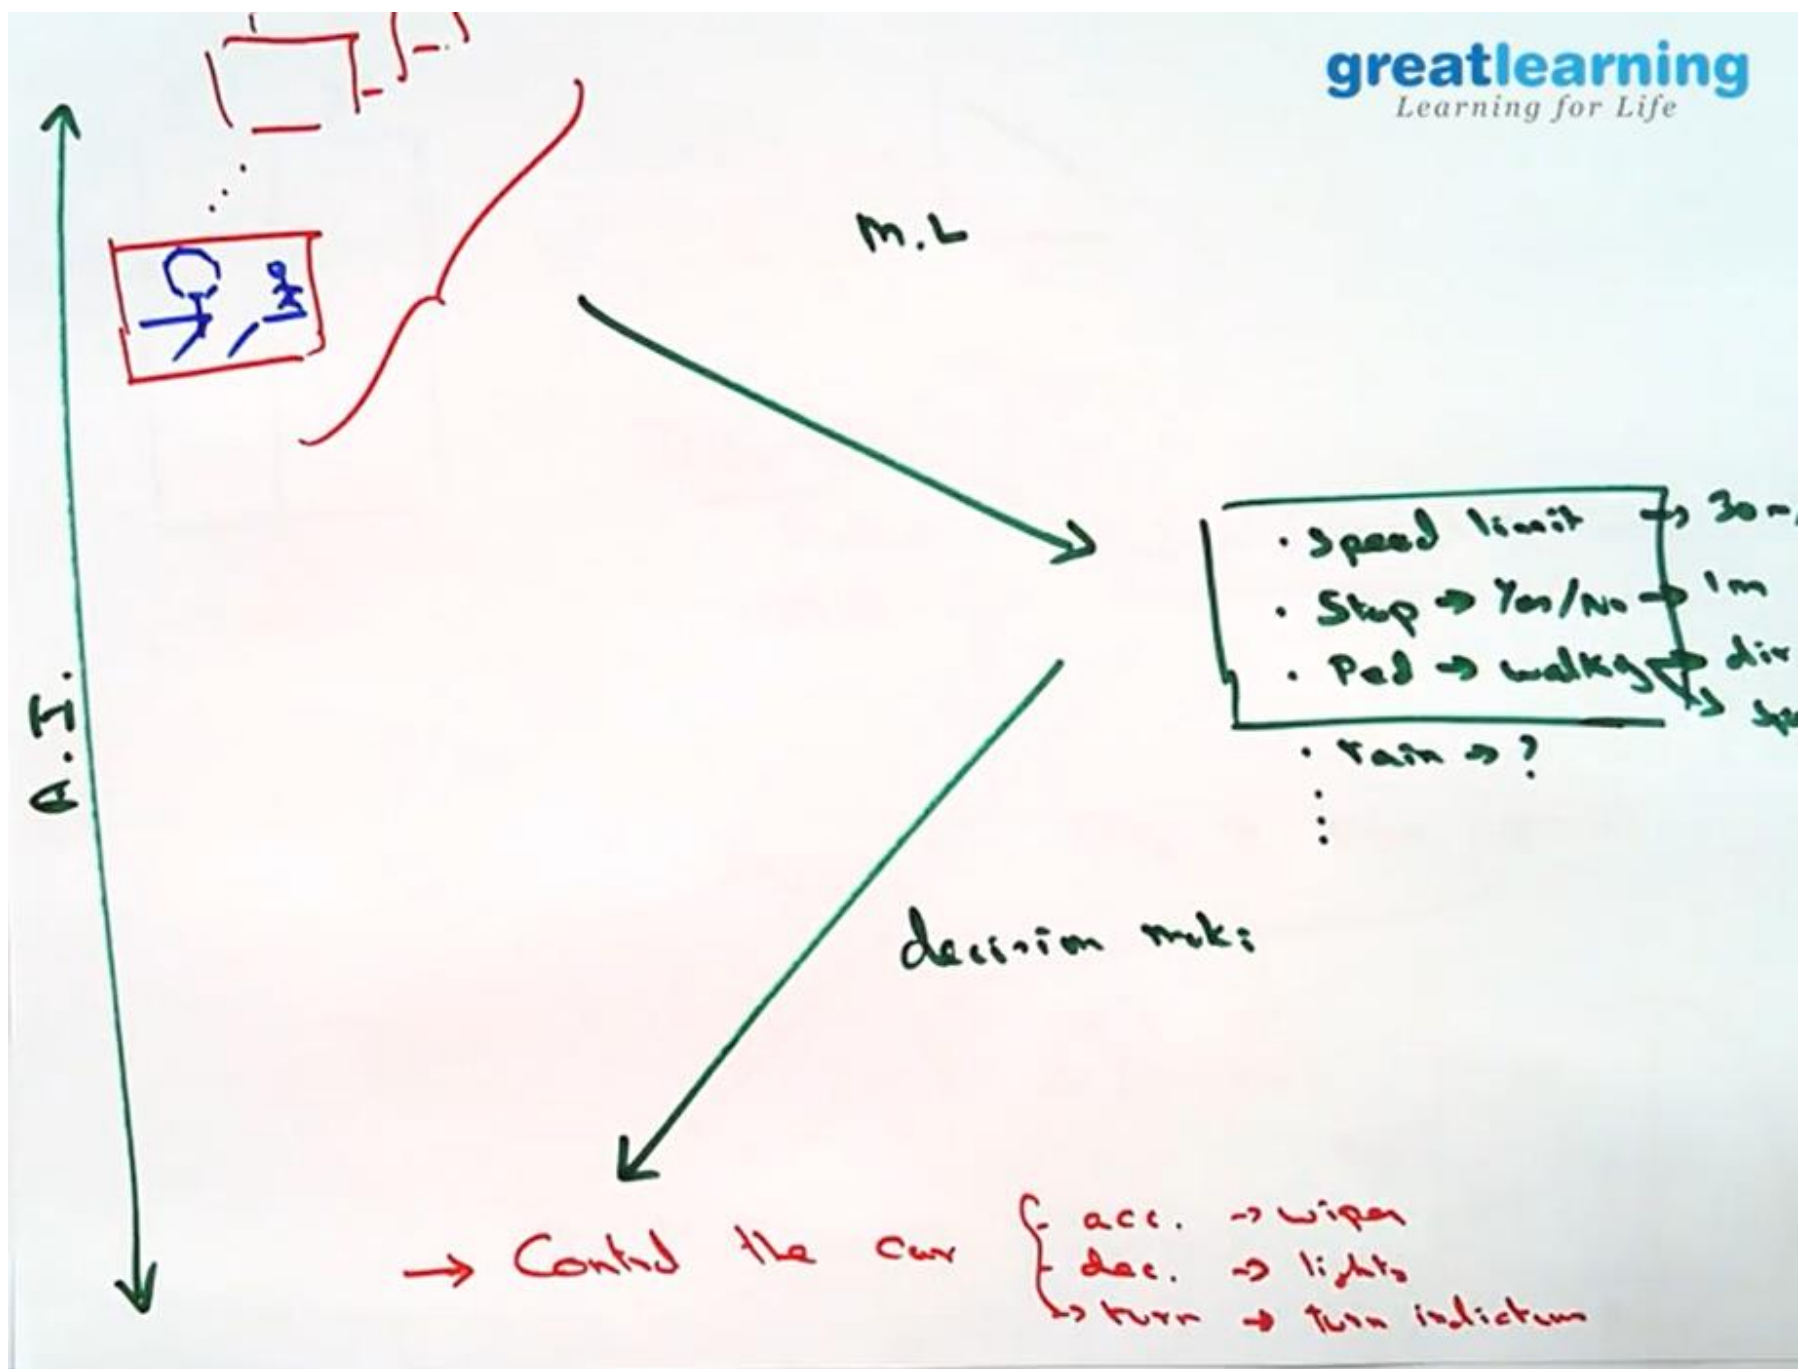 greatlearning
Learning for Life
M.L
A.I.
• Speed limit → 30
• Stop → Yes/No → 1m
• Ped → walkg → dir
• rain → ?
decision maki
→ Control the car
- acc. → wiper
- dec. → lights
→ turn → turn indictors